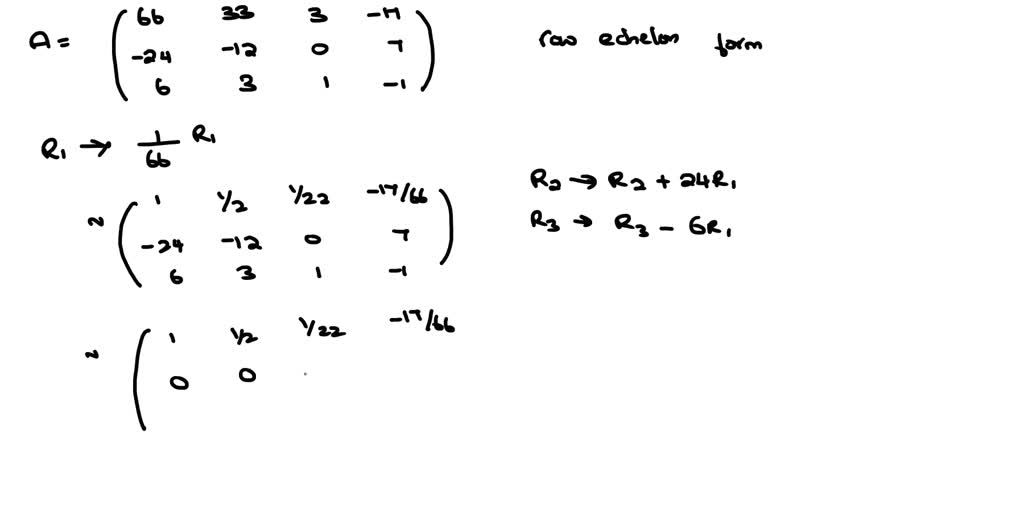 A = ( 66 33 3 -17
-24 -12 0 7
6 3 1 -1 )
row echelon form
R₁ → 1/66 R₁
~ ( 1 1/2 1/22 -17/66
-24 -12 0 7
6 3 1 -1 )
R₂ → R₂ + 24R₁
R₃ → R₃ - 6R₁
~ ( 1 1/2 1/22 -17/66
0 0